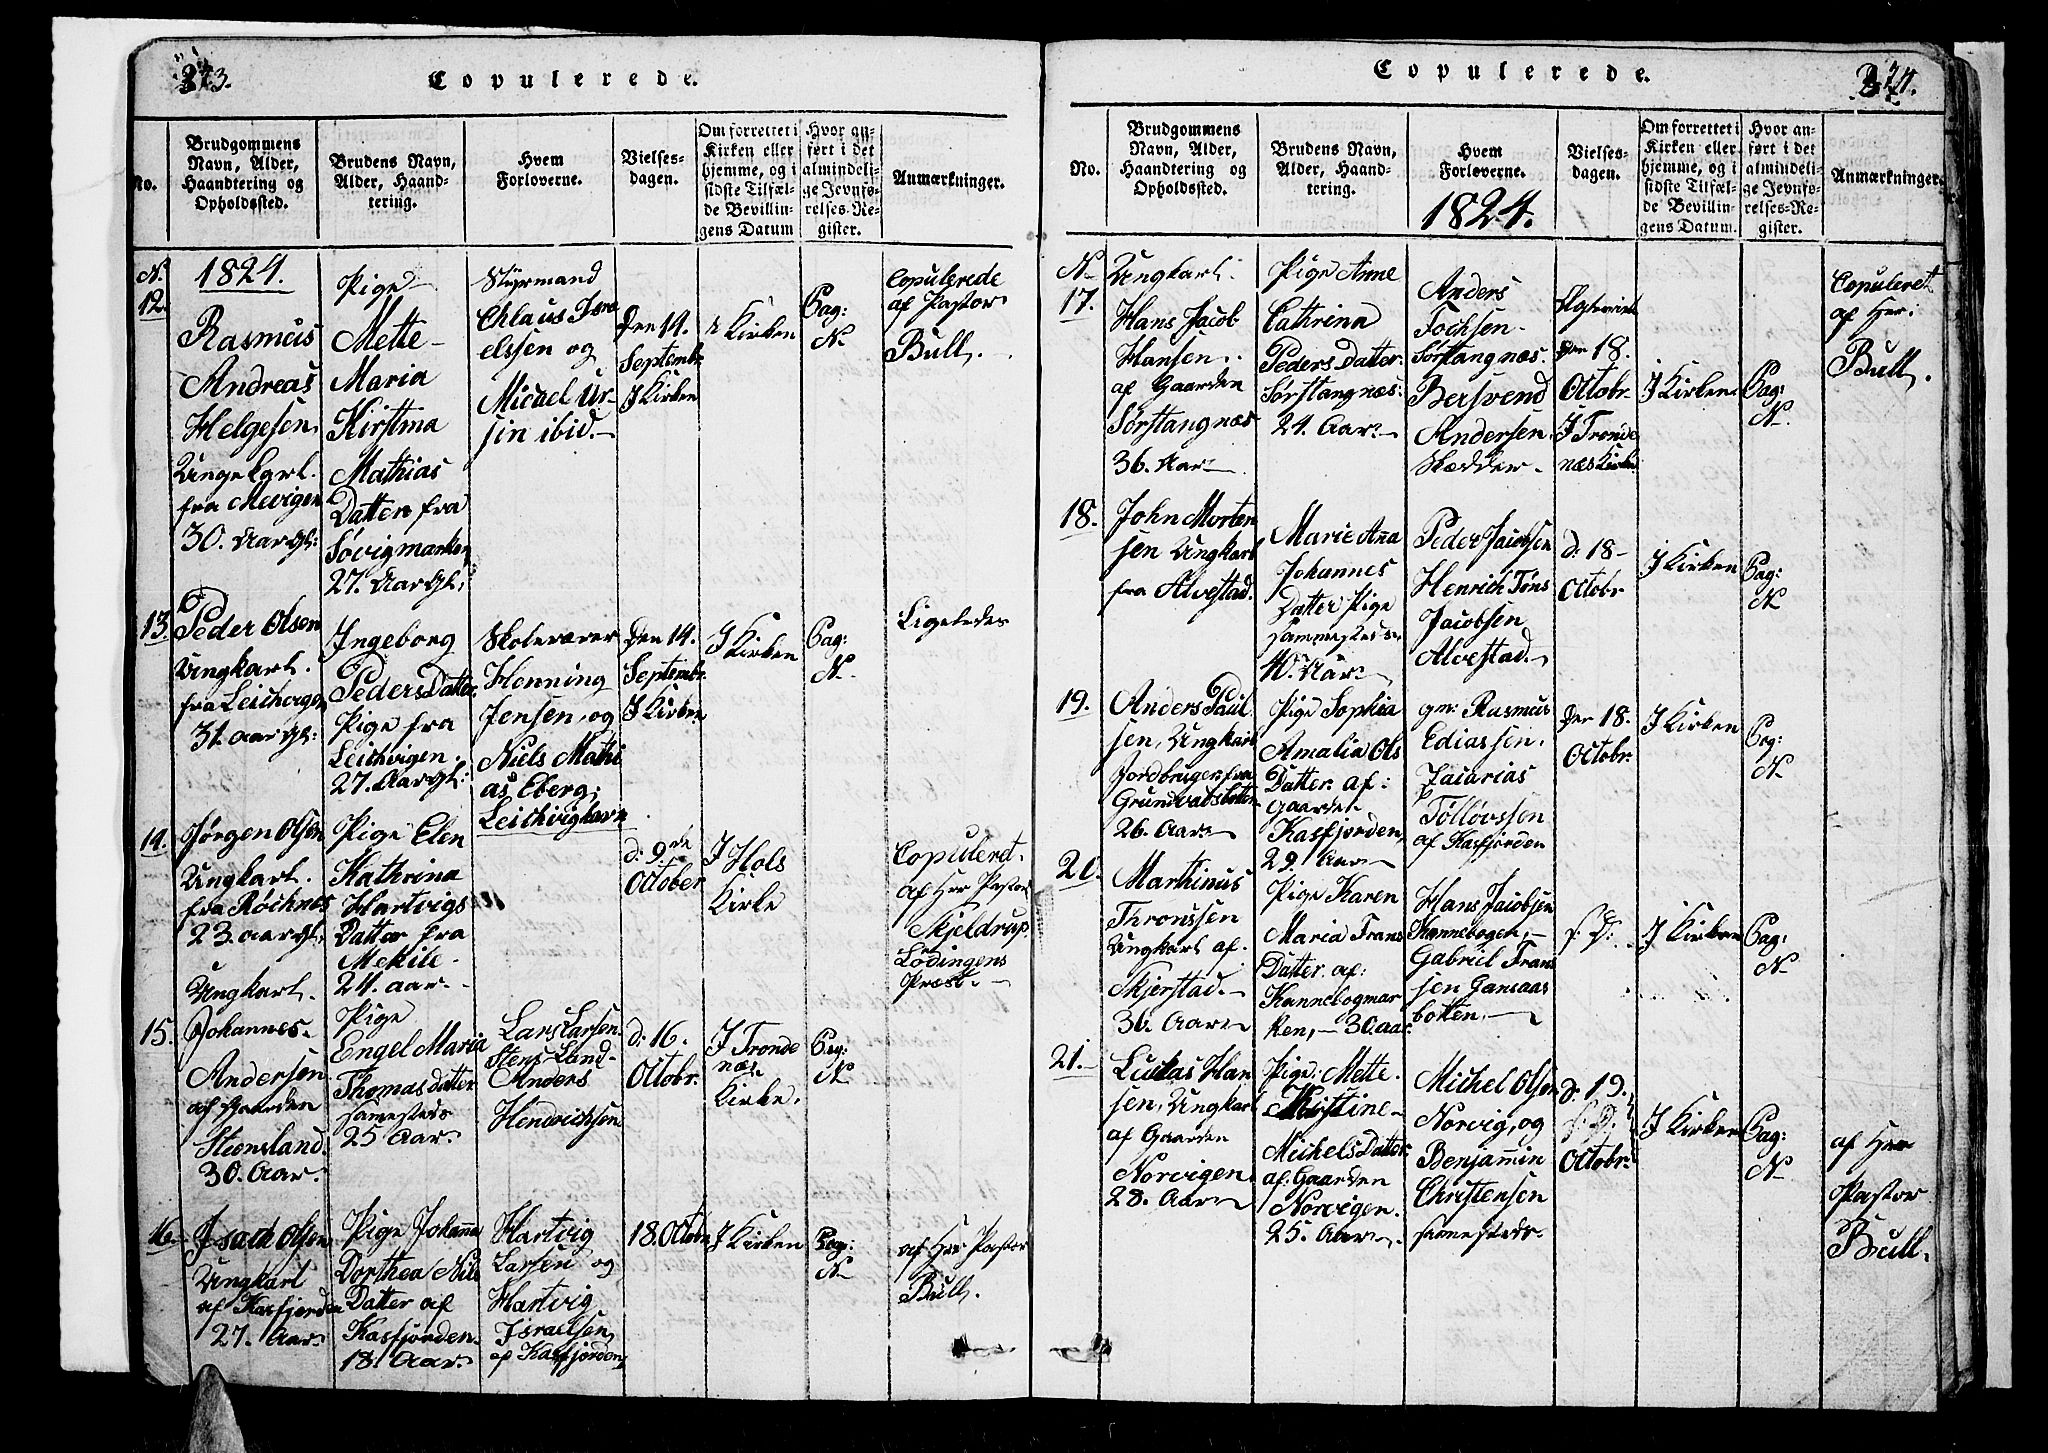 273.
Copulerede.
No.
Brudgommens
Navn, Alder,
Haandtering og
Opholdssted.
Brudens Navn,
Alder, Haand-
tering.
Hvem
Forloverne.
Vielses-
dagen.
Om forrettet i
Kirken eller
hjemme, og i
sidste Tilfæl-
de Bevillin-
gens Datum
Hvor an-
ført i det
almindeli-
ge Jevnfø-
relses-Re-
gister.
Anmærkninger.
N.
12.
1824.
Rasmus
Andreas
Helgesen
Ungekarl.
fra Mevigen
30. Aar Gl:
Pige
Mette
Maria
Kirstina
Mathias
Datter fra
Søvigmarken
27. Aar Gl:
Styrmand
Chlaus Isra
elssen og
Micael Ur-
sin ibid.
Den 14.
Septembr
I Kirken
I Kirken
Pag:
N
Copulerede
af Pastor
Bull.
13.
Peder Olsen
Ungkarl.
fra Leithvigen
31. aar gl:
Ingeborg
Peders Datter
Pige fra
Leithvigen.
27. Aar Gl:
Skoleværer
Henning
Jensen, og
Niels Mathi
as Eberg;
Leithvighavn
Den 14.
Septembr.
I Kirken
I Kirken
Pag:
N.
Ligeledes
14.
Jørgen Olsen
Ungkarl.
fra Røchnes
23. aar gl.
Pige Elen
Kathrina
Hartvigs
Datter fra
Mekile.
24. aar.
d: 9de
October
I Hols
Kirke
Copuleret
af Her Pastor
Skjeldrup.
Lødingens
Præst.
15.
Ungkarl.
Johannes
Andersen
af Gaarden
Steensland
30. Aar.
Pige
Engel Maria
Thomas datter
samesteds
25 Aar.
Lars Larsen
Stensland
Anders
Hendrichsen
d: 16.
Octobr.
I Tronde
næs
Kirke.
Pag:
N
16.
Isach Olsen
Ungkarl
af Kasfjorden
27. Aar
Pige Johanna
Dorthea Nils
Datter af
Kasfjorden.
18. Aar.
Hartvig
Larsen og
Hartvig
Israelsen
af Kasfjorden
18. Octobr
I Kirken
Pag:
N
af Her Pastor
Bull.
274.
Copulerede.
No.
Brudgommens
Navn, Alder,
Haandtering og
Opholdssted.
Brudens Navn,
Alder, Haand-
tering.
Hvem
Forloverne.
1824.
Vielses-
dagen.
Om forrettet i
Kirken eller
hjemme, og i
sidste Tilfæl-
de Bevillin-
gens Datum.
Hvor an-
ført i det
almindeli-
ge Jevnfø-
relses-Re-
gister.
Anmærkninger.
N
17.
Ungkarl.
Hans Jacob
Hansen.
af Gaarden
Sørstangnæs
36. Aar
Pige Anne
Cathrina
Peders Datter.
Sørstangnæs:
24. Aar
Anders
Tochsen
Sørstangnæs.
Bersvend
Andersen
Den 18.
Octobr
I Tronde
næs Kirke
I Kirken
Pag:
N.
Copuleret
af Her:
Bull.
18.
John Morten
sen Ungkarl
fra Alvestad.
Marie Ana
Johannes
Datter Pige
sammesteds
40. Aar
Peder Jacobsen
Henrich Tøns
Jacobsen
Alvestad.
d: 18
Octobr
I Kirken
Pag:
N
19.
Anders Paul
sen, Ungkarl
Jordbruger fra
Grundvatsbotten
26. Aar
Pige Sophia
Amalia Ols
Datter. af:
Gaarden
Kasfjorden
29. Aar
gm: Rasmus
Ediassen.
Zacarias
Tølløvssen
af Kasfjorden
Den 18.
Octobr.
I Kirken
Pag:
N
20.
Marthinus
Thronssen
Ungkarl af.
Skjerstad.
36. Aar
Pige Karen
Maria Frans
Datter af:
Kannebogmar
ken, 30 aar.
Hans Jacobsen
Kannebogen,
Gabriel Frans
sen Gansaas
botten.
s. D:
I Kirken
Pag:
N
21.
Lucas Han
sen, Ungkarl
af Gaarden
Norvigen.
28. Aar
Pige: Mette
Kirstine
Michels Datter.
af Gaarden
Norvigen.
25. Aar
Michel Olsen
Norvig, og
Benjamin
Christensen
sammesteds.
d: 19.
s. D.
Octobr.
I Kirken
Pag:
N
af Her
Pastor
Bull.